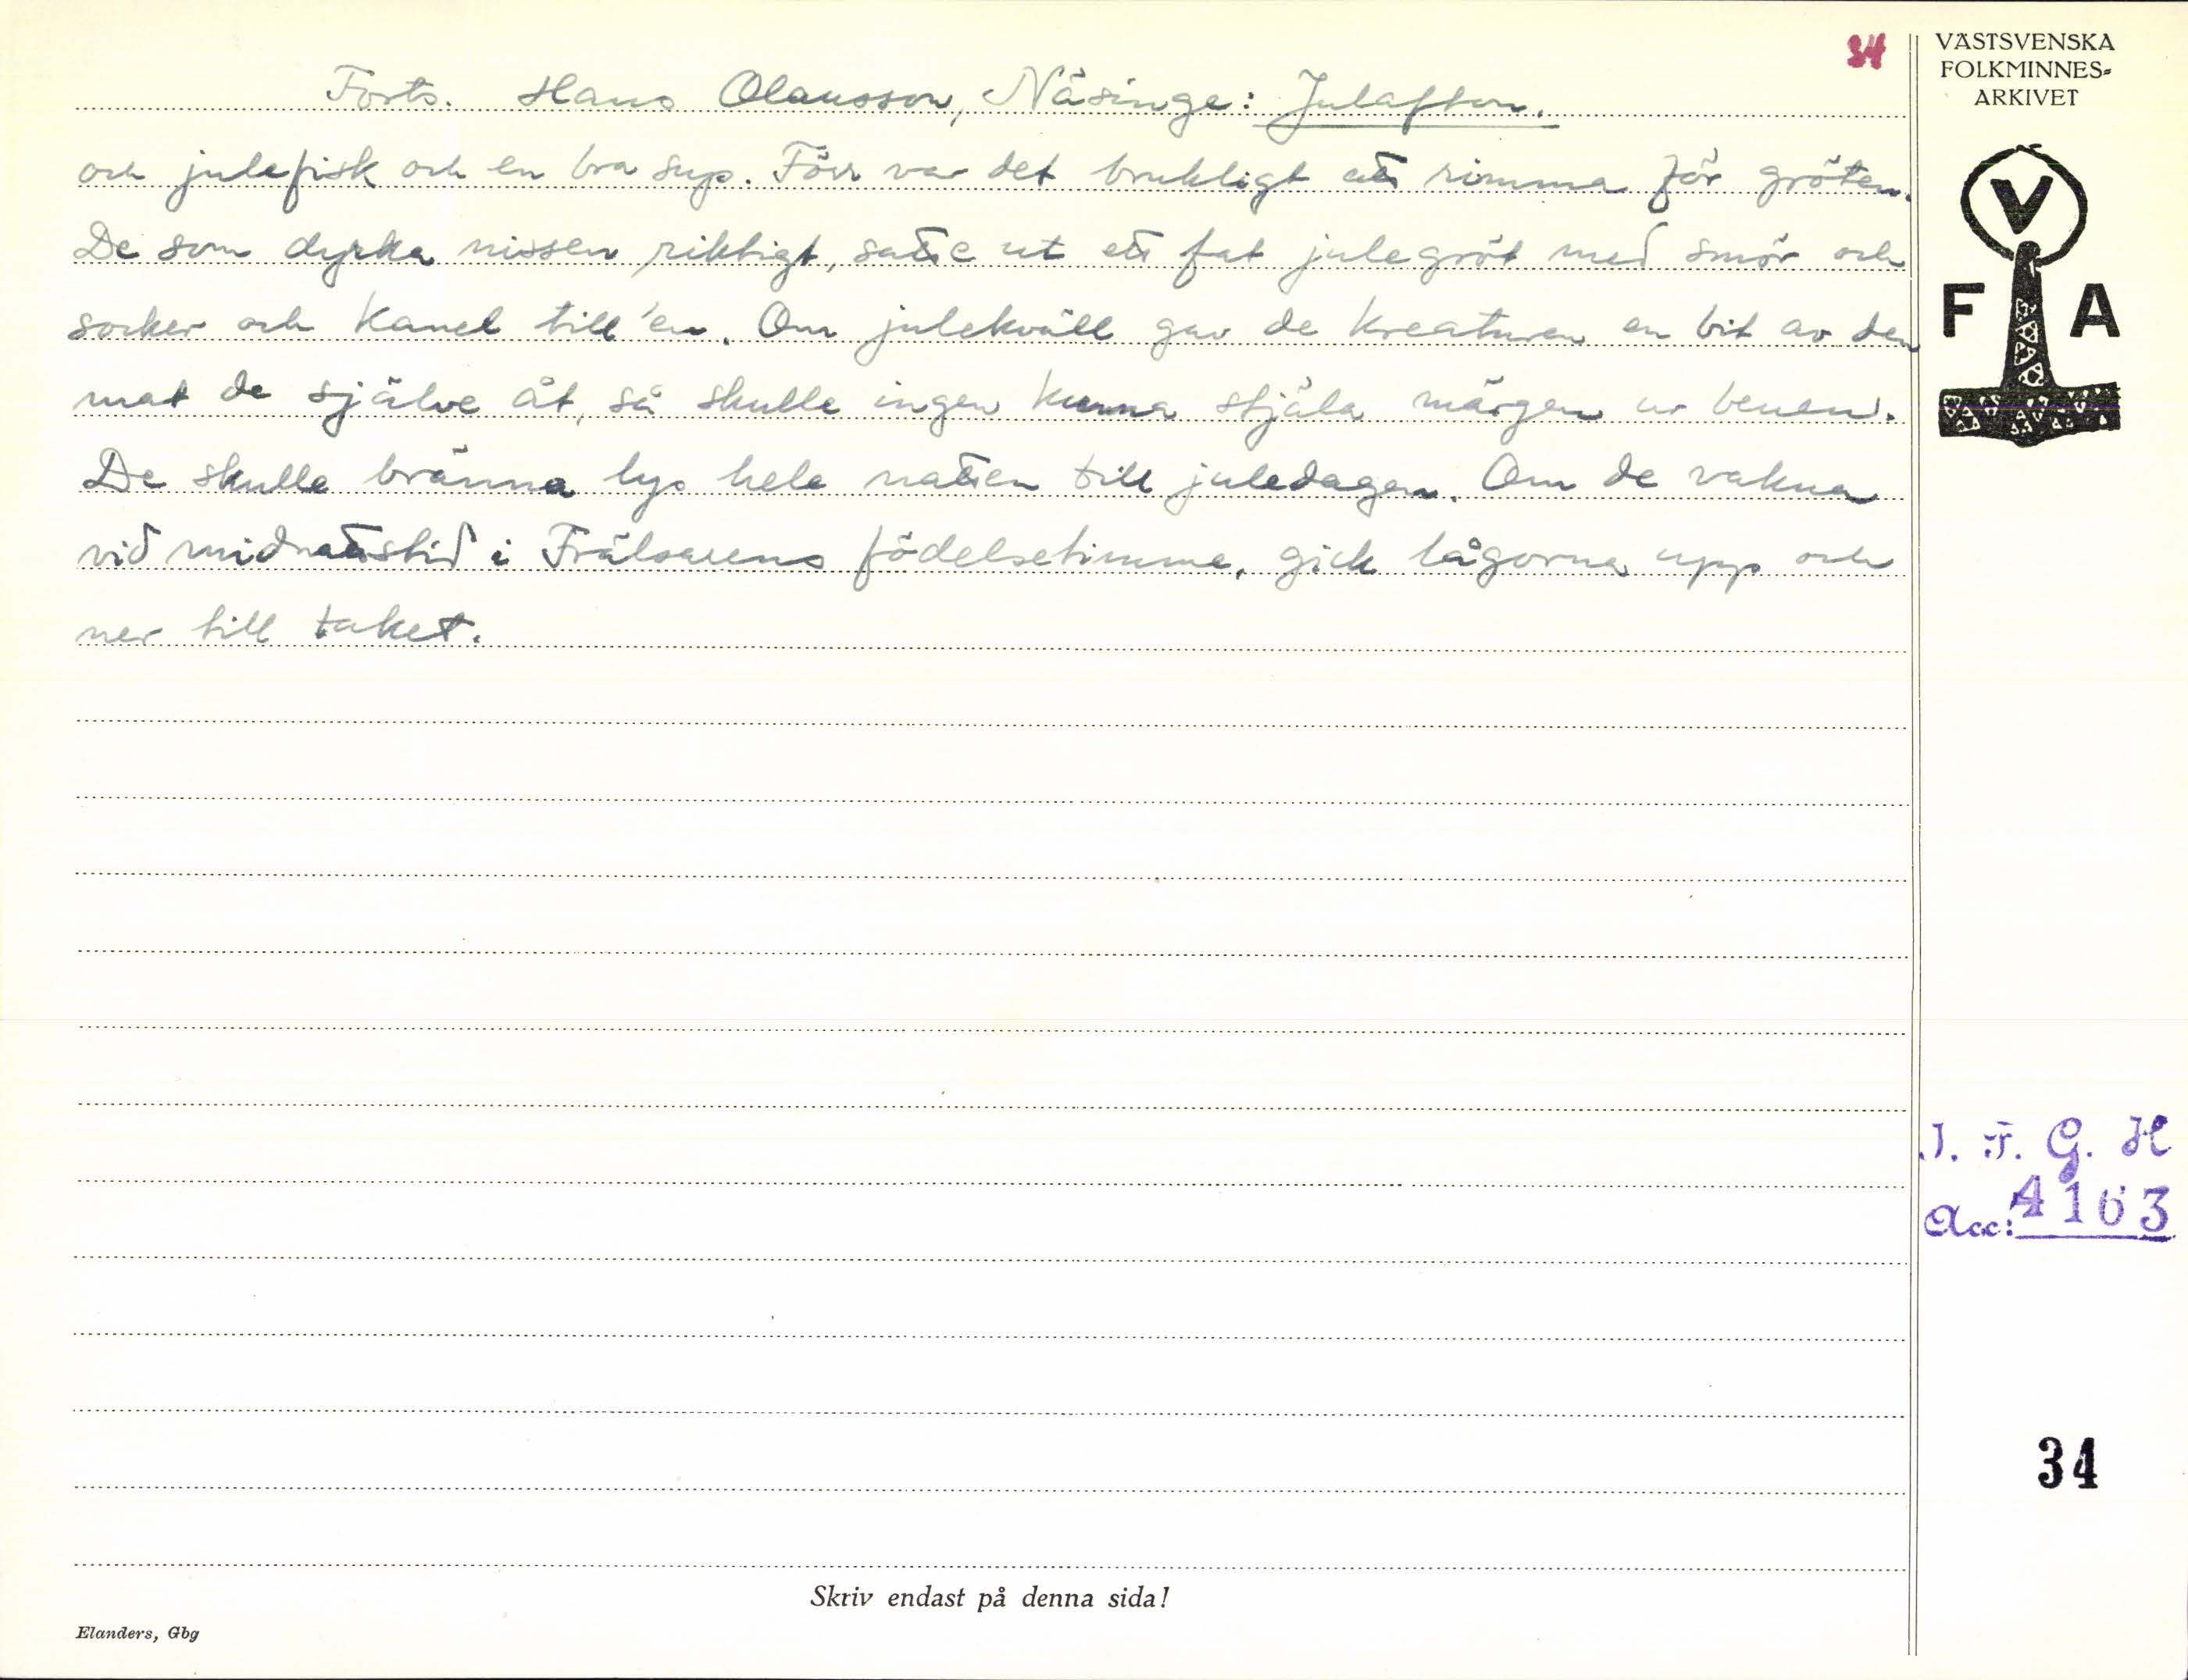 34
Forts. Hans Olausson, Näsinge: Julafton.
och julefisk och en bra sup. Förr var det brukligt att rimma för gröten.
De som dyrka nissen riktigt, satte ut ett fat julegröt med smör och
socker och kanel till 'en. Om julekväll gav de kreaturen en bit av den
mat de själve åt, så skulle ingen kunna stjäla märgen ur benen.
De skulle bränna lys hele natten till juledagen. Om de vakna
vid midnattstid i Frälsarens födelsetimme, gick lågorna upp och
ner till taket.
Skriv endast på denna sida!
Elanders, Gbg
VÄSTSVENSKA
FOLKMINNES-
ARKIVET
V
F A
I. F. G. H
Acc: 4163
34